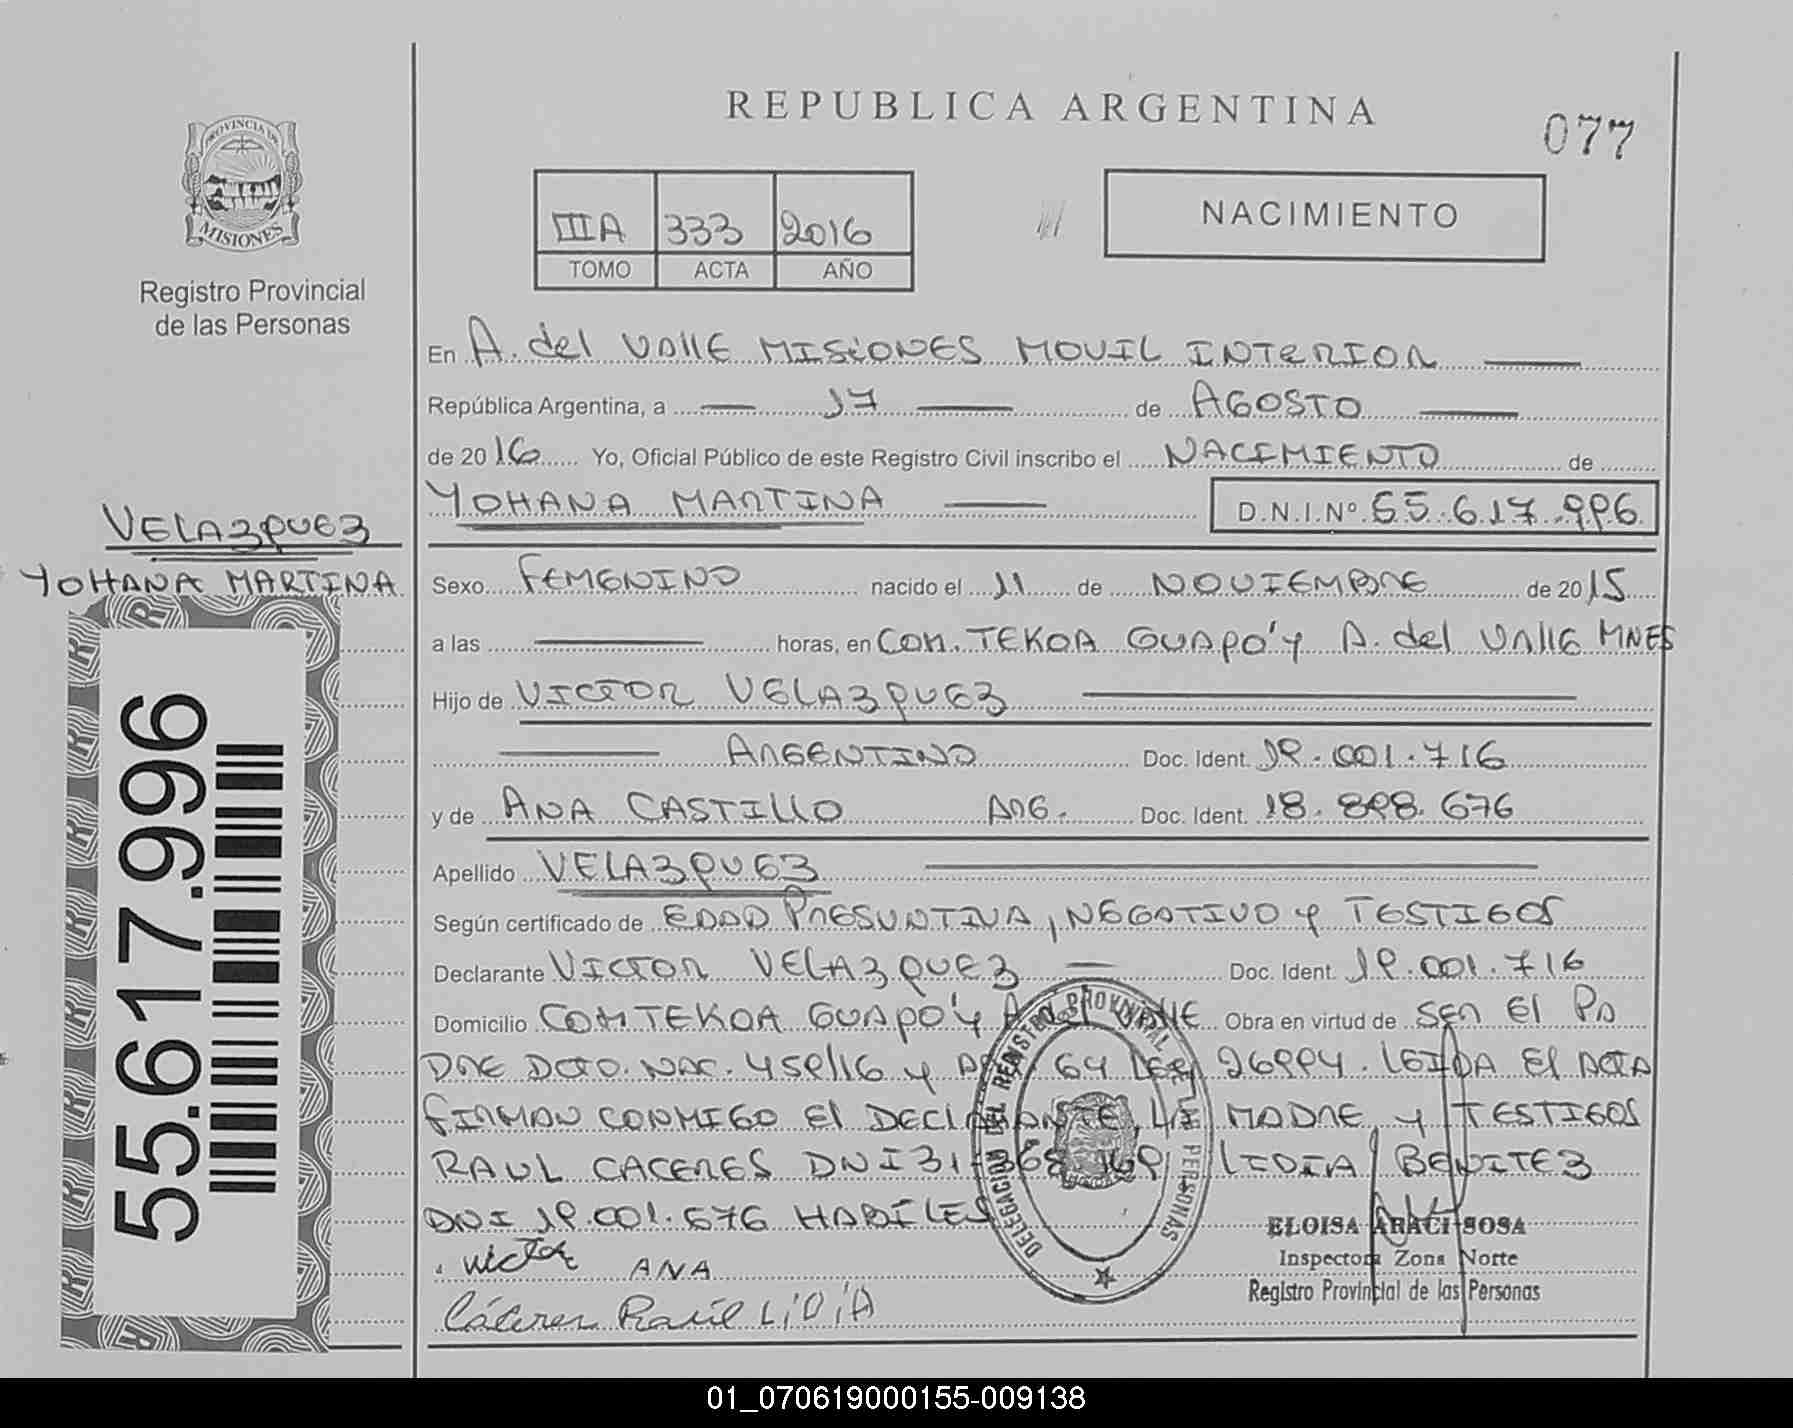 REPUBLICA ARGENTINA
077
PROVINCIA DE
MISIONES
Registro Provincial
de las Personas
IIIA 333 2016
TOMO ACTA AÑO
NACIMIENTO
En A. del VAllE MISIONES MOVIL INTERIOR
República Argentina, a 17 de AGOSTO
de 2016 Yo, Oficial Público de este Registro Civil inscribo el NACIMIENTO de
YOHANA MARTINA D.N.I.Nº 55.617.996
VELAZQUEZ
YOHANA MARTINA
55.617.996
Sexo FEMENINO nacido el 11 de NOVIEMBRE de 2015
a las horas, en COM. TEKOA GUAPO'Y A. del VAllE MNES
Hijo de VICTOR VELAZQUEZ
ARGENTINO Doc. Ident. 19.001.716
y de ANA CASTILLO ARG. Doc. Ident. 18.898.676
Apellido VELAZQUEZ
Según certificado de EDAD PRESUNTIVA, NEGATIVO y TESTIGOS
Declarante VICTOR VELAZQUEZ Doc. Ident. 19.001.716
Domicilio COM TEKOA GUAPO'Y A. del VAllE Obra en virtud de SER El PA
DRE DCTO. NAC. 459/16 y ART 64 LEY 26994. LEIDA El ACTA
FIRMAN CONMIGO El DECLARANTE, LA MADRE y TESTIGOS
RAUL CACERES DNI 31.368.169 LIDIA BENITEZ
DNI 19.001.676 HABILES
DELEGACION DEL REGISTRO PROVINCIAL DE LAS PERSONAS
ELOISA ARACI SOSA
Inspectora Zona Norte
Registro Provincial de las Personas
Victor ANA
Cáceres Raúl LiDiA
01_070619000155-009138